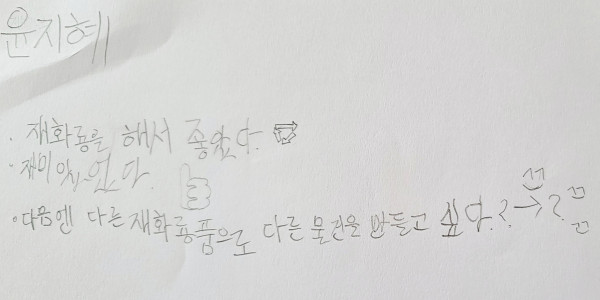 윤지혜
· 재화룡을 해서 좋았다.
· 재미 있었다.
· 다음엔 다른 재화룡품으로 다른 물건을 만들고 싶다.? → ?